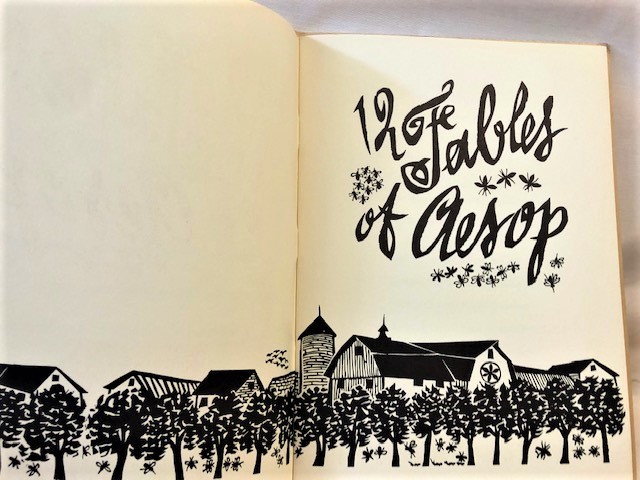 12 Fables
of Aesop